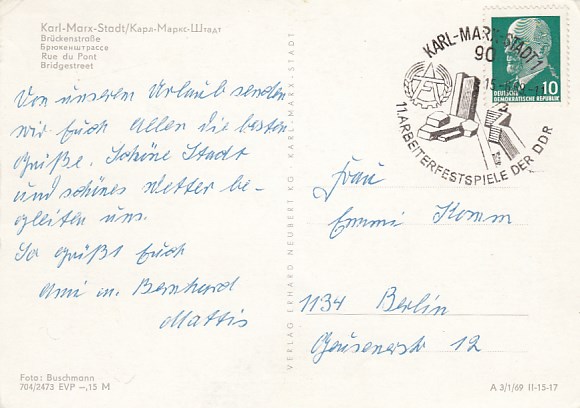 Karl-Marx-Stadt/Карл-Маркс-Штадт
Brückenstraße
Брюкенштрассе
Rue du Pont
Bridgestreet
Von unserem Urlaub senden
wir Euch Allen die besten
Grüße. Schöne Stadt
und schönes Wetter be-
gleiten uns.
So grüßt Euch
Ami u. Bernhard
Mattis
Foto: Buschmann
704/2473 EVP –,15 M
VERLAG ERHARD NEUBERT KG · KARL-MARX-STADT
KARL-MARX-STADT 1
90
11. ARBEITERFESTSPIELE DER DDR
DEUTSCHE
DEMOKRATISCHE REPUBLIK
10
Frau
Emmi Komm
1134 Berlin
Geusenerstr 12
A 3/1/69 II-15-17